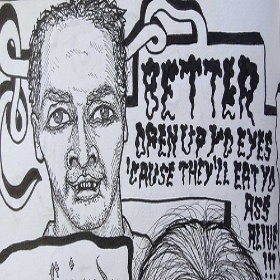 BETTER
OPEN UP YO EYES
'CAUSE THEY'LL EAT YO
ASS
ALIVE
!!!